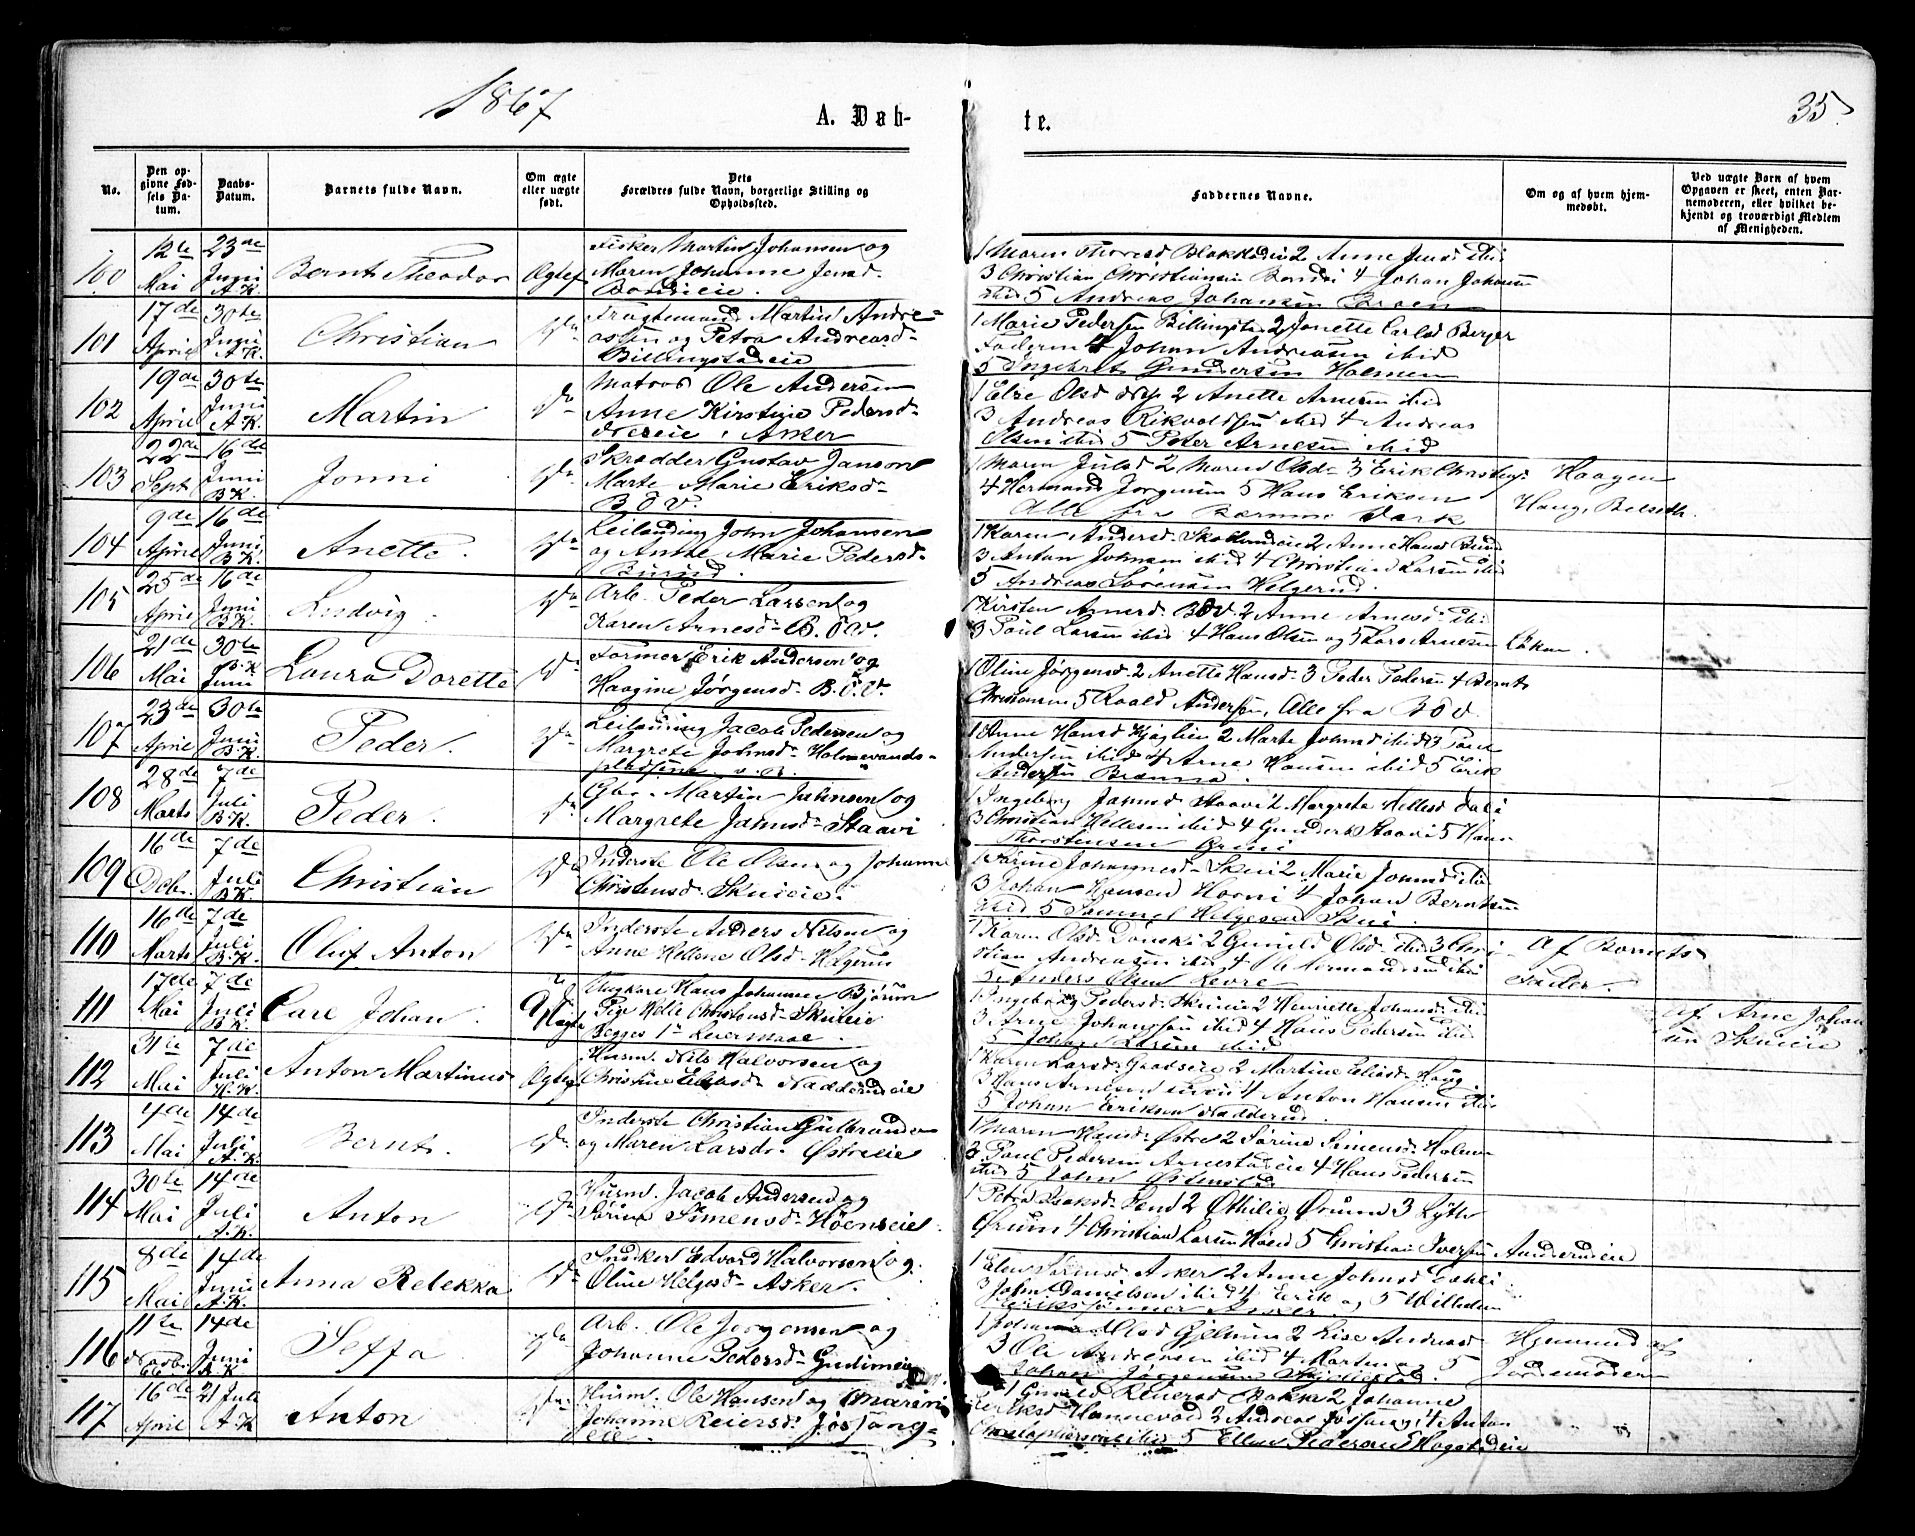 1867
A. Døb-
te.
35.
No.
Den op-
givne Fød-
sels Da-
tum.
Daabs-
Datum.
Barnets fulde Navn.
Om ægte
eller uægte
født.
Dets
Forældres fulde Navn, borgerlige Stilling og
Opholdssted.
Faddernes Navne.
Om og af hvem hjem-
medøbt.
Ved uægte Børn af hvem
Opgaven er skeet, enten Bar-
nemoderen, eller hvilket be-
kjendt og troværdigt Medlem
af Menigheden.
100
12te
Mai
23de
Juni
A.K.
Bernt Theodor
Ægtef
Fisker Martin Johansen og
Maren Johanne Jensd.
Bondieie.
1 Maren Thoresd Blakstadeie 2 Anne Jensd ibid
3 Christian Christiansen Bondi 4 Johan Johansen
ibid 5 Andreas Johansen Braten
101
17de
April
30te
Juni
A.K.
Christian
do
Fragtemand Martin Andre-
assen og Petra Andreasd.
Billingstadeie
1 Marie Pedersen Billingstad 2 Jonette Carlsd Berger
4 Johan Andreasen ibid
5 Ingebret Gundersen Holmen
102
19de
April
30te
Juni
A.K.
Martin
do
Matros Ole Andersen
Anne Kirstine Pedersd.
Næseie, Asker
1 Else Olsd 2 Anette Arnesen ibid
3 Andreas Rikvoldsen ibid 4 Andreas
Olsen ibid 5 Peter Arnesen ibid
103
22de
Sept.
16de
Juni
B.K.
Jonni
do
Skrædder Gustav Janson
Marte Marie Eriksd.
B Ø V.
1 Maren Julsd 2 Maren Olsd. 3 Erik Christens.
4 Hermand Jørgensen 5 Hans Eriksen
Alle fra Bærums Værk
Haagen
Haug, Belseth.
104
9de
April
16de
Juni
B.K.
Anette.
do
Leilænding John Johansen
og Anne Marie Pedersd.
Burud.
1 Karen Andersd. Skollumeie 2 Anne Hansd Burud
3 Anton Johnsen ibid 4 Christian Larsen ibid
5 Andreas Sørensen Helgerud.
105
25de
April
16de
Juni
B.K.
Ludvig.
do
Arb. Peder Larsen og
Karen Arnesd. B. Ø V.
1 Kirsten Arnesd. B Ø V. 2 Anne Arnesd. ibi.
3 Poul Larsen ibid 4 Hans Olsen og 5 Lars Arnesen Løken.
106
21de
Mai
30te
B.K.
Juni
Laura Dorette
do
Former Erik Andersen og
Haagine Jørgensd. B. Ø. V.
1 Oline Jørgensd. 2 Anette Hansd. 3 Peder Pedersen 4 Bernt
Christensen 5 Roald Andersen, Alle fra B Ø V.
107
23de
April
30te
Juni
B.K.
Peder.
do
Leilænding Jacob Pedersen og
Margrete Johnsd. Holmevands-
pladsene v. B.
1 Anne Hansd Kjaglien 2 Marte Johnsd ibid 3 Poul
Andersen ibid 4 Arne Hansen ibid 5 Erik
Andersen Brenna.
108
28de
Marts
7de
Juli
B.K.
Peder.
do
Gbr. Martin Johnsen og
Margrete Johnsd. Staavi
1 Ingeborg Jonsd. Staavi 2 Margrete Hellesd Dæli
3 Christian Hellesen ibid 4 Gunders Staavi 5 Hans
Thorstensen Brini
109
16de
Debr.
7de
Juli
B.K.
Christian
do
Inderste Ole Olsen og Johanne
Christensd. Skuieie.
1 Karine Johannesd. Skui 2 Marie Jonsd ibi
3 Johan Hansen Horni 4 Johan Berntsen
ibid 5 Samuel Helgesen Skui.
110
16de
Marts
7de
Juli
B.K.
Oluf Anton
do
Inderste Anders Nilsen og
Anne Hellene Olsd. Helgerud
1 Karen Olsd. Dønski 2 Gunild Olsd. ibid 3 Chri-
stian Andreasen ibid 4 Ole Normandsen ibid
5 Anders Olsen Levre
Af Barnets
Fader.
111
17de
Mai
7de
Juli
B.K.
Carl Johan.
Uægte
Ungkarl Hans Johansen Bjørum
Pige Helle Christensd. Skuieie
Begges 1te Leiermaal.
1 Ingeborg Pedersd. Skuieie 2 Henriette Johansd. ibi
3 Arne Johansen ibid 4 Hans Pedersen ibi
5 Johan Larsen ibid
af Arne Johan
sen Skuieie
112
31te
Mai
7de
Juli
H.K.
Anton Martinus
Ægtef
Husm. Nils Halvorsen og
Christine Eliasd. Nadderudeie
1 Karen Larsd. Gradseie 2 Martine Eliasd. Haug
3 Hans Arnesen 4 Anton Hansen ibi
5 Johan Eriksen Nadderud.
113
4de
Mai
14de
Juli
A.K.
Bernt.
do
Inderste Christian Gulbrands.
og Maren Larsd. Østreeie
1 Maren Hansd. Østre 2 Sørine Simensd. Holmen
3 Paul Pedersen Arnestadeie 4 Hans Pedersen
ibid 5 John Østenstad
114
30te
Mai
14de
Juli
A.K.
Anton
do
Husm. Jacob Andersen og
Sørine Simensd. Høenseie
1 Petra Isaksd. 2 Othilie Ørum 3 Lytte
Ørum 4 Christian Larsen Høen 5 Christian Iversen Aanderudeie
115
8de
Mai
14de
Juni
A.K.
Anna Rebekka
do
Snedker Edvard Halvorsen og
Oline Helgesd. Asker.
1 Elen Asker 2 Anne Johnsd. Dahli
3 John Danielsen ibid 4 Erik og 5 Wilhelm
Asker.
116
11te
Novbr.
66
14de
Juni
A.K.
Seffa
do
Arb. Ole Jørgensen og
Johanne Pedersd. Gutimeie
1 Johanne Olsd Gjelsum 2 Lise Andreasd
3 Ole Andreasen ibid 4 Marten og 5
Johan Jørgensen
Hjemmed. af
Jordemoderen
117
16de
April
21 Juli
A.K.
Anton
do
Husm. Ole Hansen og Maren
Johanne Reiersd. Jøssong-
eie.
1 Gunild Reiersd. Bakke 2 Johanne
Eriksd Hannevold 3 Andreas Jøssong, 4 Anton
Christophersen ibid 5 Ellen Pedersen Hogstadeie